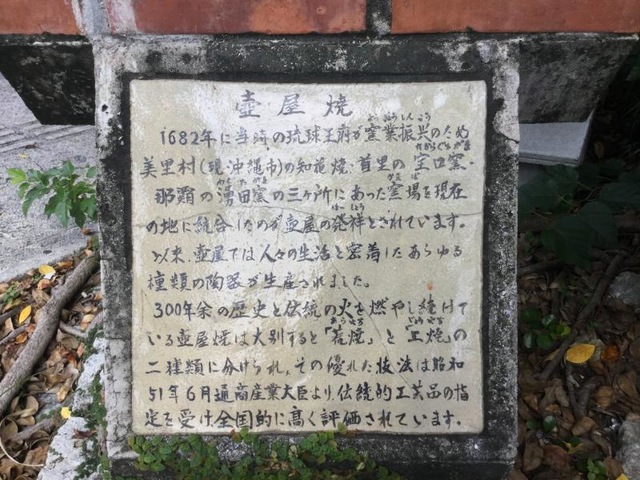 壺屋焼
1682年に当時の琉球王府が窯業振興のため
美里村(現沖縄市)の知花焼、首里の宝口窯、
那覇の湧田窯の三ヶ所にあった窯場を現在
の地に統合したのが壺屋の発祥とされています。
以来、壺屋では人々の生活と密着したあらゆる
種類の陶器が生産されました。
300年余の歴史と伝統の火を燃やし続けて
いる壺屋焼は大別すると「荒焼」と「上焼」の
二種類に分けられ、その優れた技法は昭和
51年6月通商産業大臣より、伝統的工芸品の指
定を受け、全国的に高く評価されています。